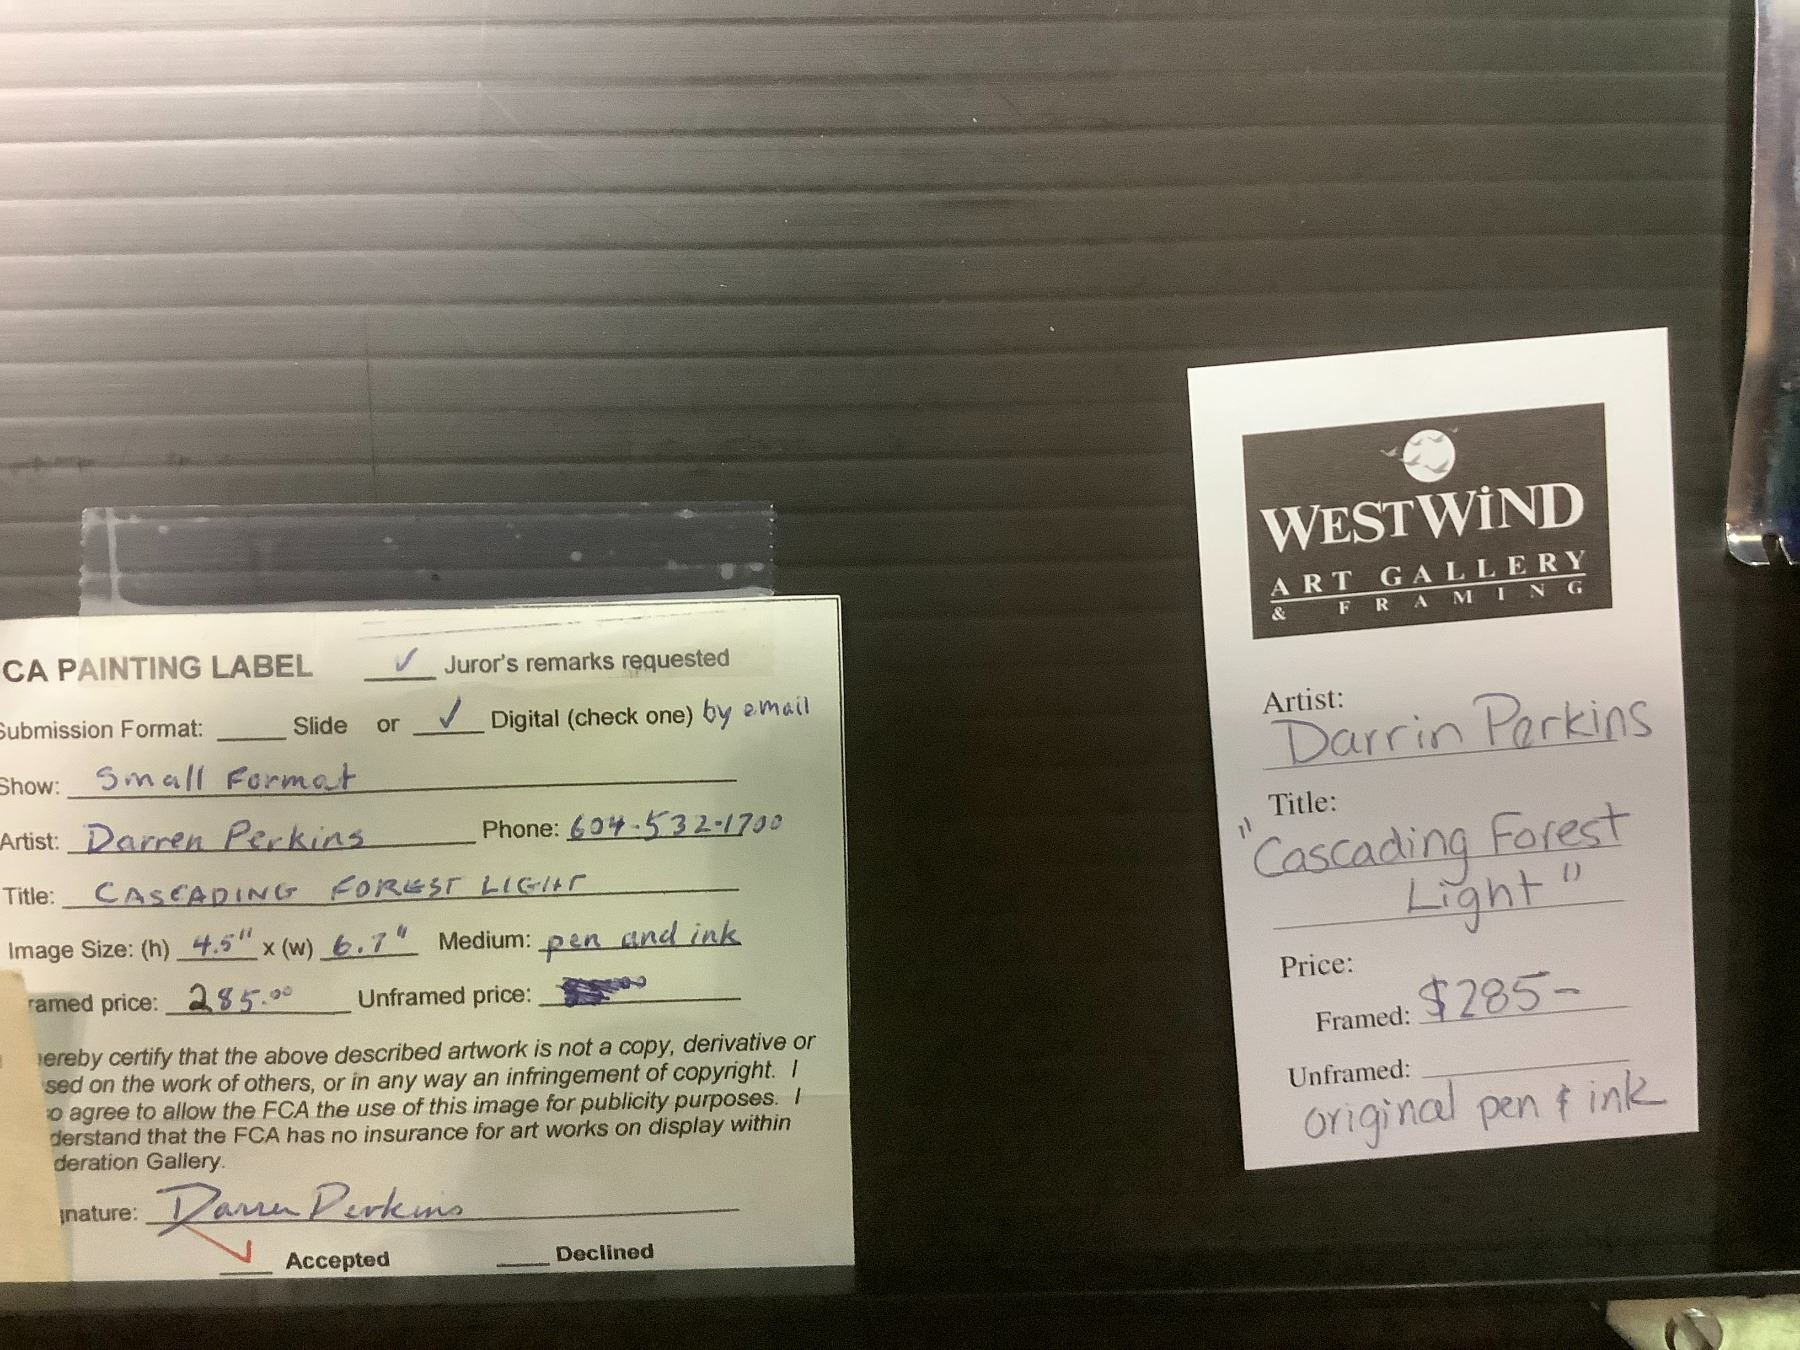 CA PAINTING LABEL ✓ Juror's remarks requested
Submission Format: ____ Slide or ✓ Digital (check one) by email
Show: Small Format
Artist: Darren Perkins Phone: 604-532-1700
Title: CASCADING FOREST LIGHT
Image Size: (h) 4.5" x (w) 6.7" Medium: pen and ink
ramed price: 285.00 Unframed price:
ereby certify that the above described artwork is not a copy, derivative or
sed on the work of others, or in any way an infringement of copyright. I
o agree to allow the FCA the use of this image for publicity purposes. I
derstand that the FCA has no insurance for art works on display within
deration Gallery.
gnature: Darren Perkins
✓ Accepted ____ Declined
WESTWIND
ART GALLERY
& FRAMING
Artist:
Darrin Perkins
Title:
"Cascading Forest
Light"
Price:
Framed: $285-
Unframed:
original pen & ink